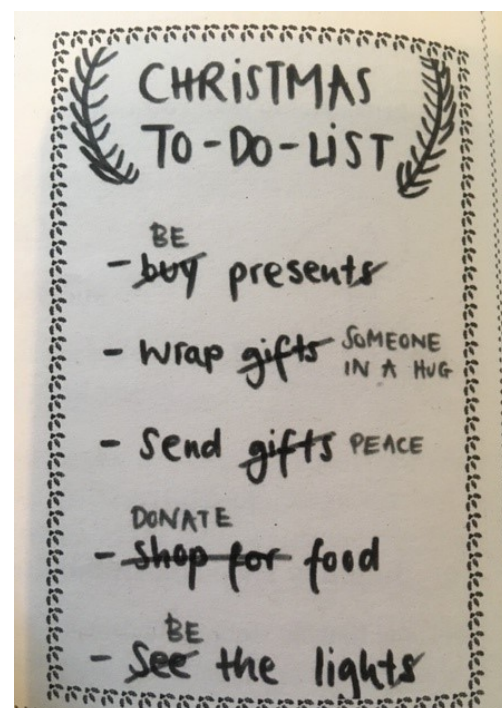 CHRiSTMAS
TO-DO-LiST
BE
- buy presents
- wrap gifts SOMEONE
IN A HUG
- Send gifts PEACE
DONATE
- shop for food
BE
- See the lights